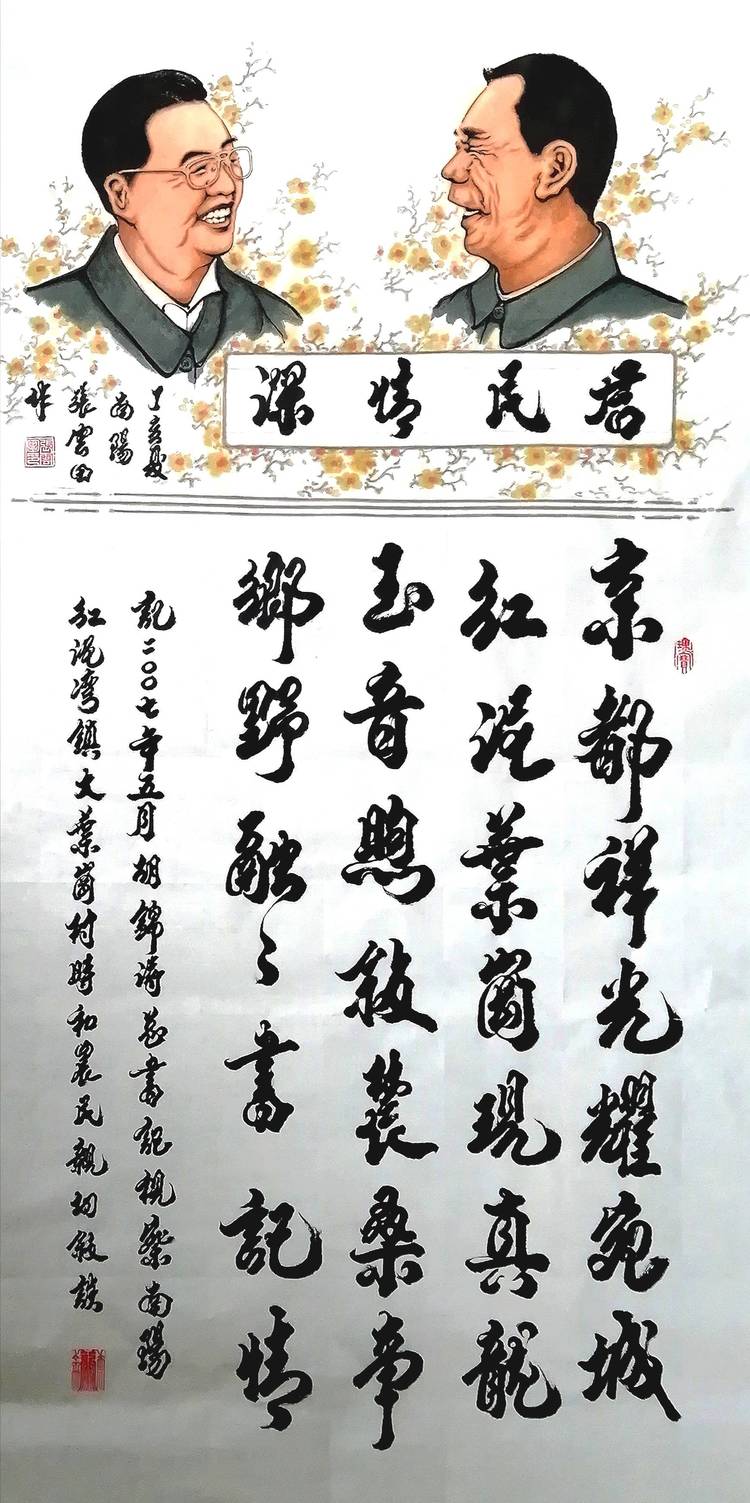 君民情深
丁亥夏
南陽
張雲
作
京都祥光耀宛城
紅泥葉崗現真龍
玉音煦敘農桑事
鄉野融々書記情
記二〇〇七年五月胡錦濤总書記視察南陽
紅泥灣鎮大葉崗村時和農民親切敘談